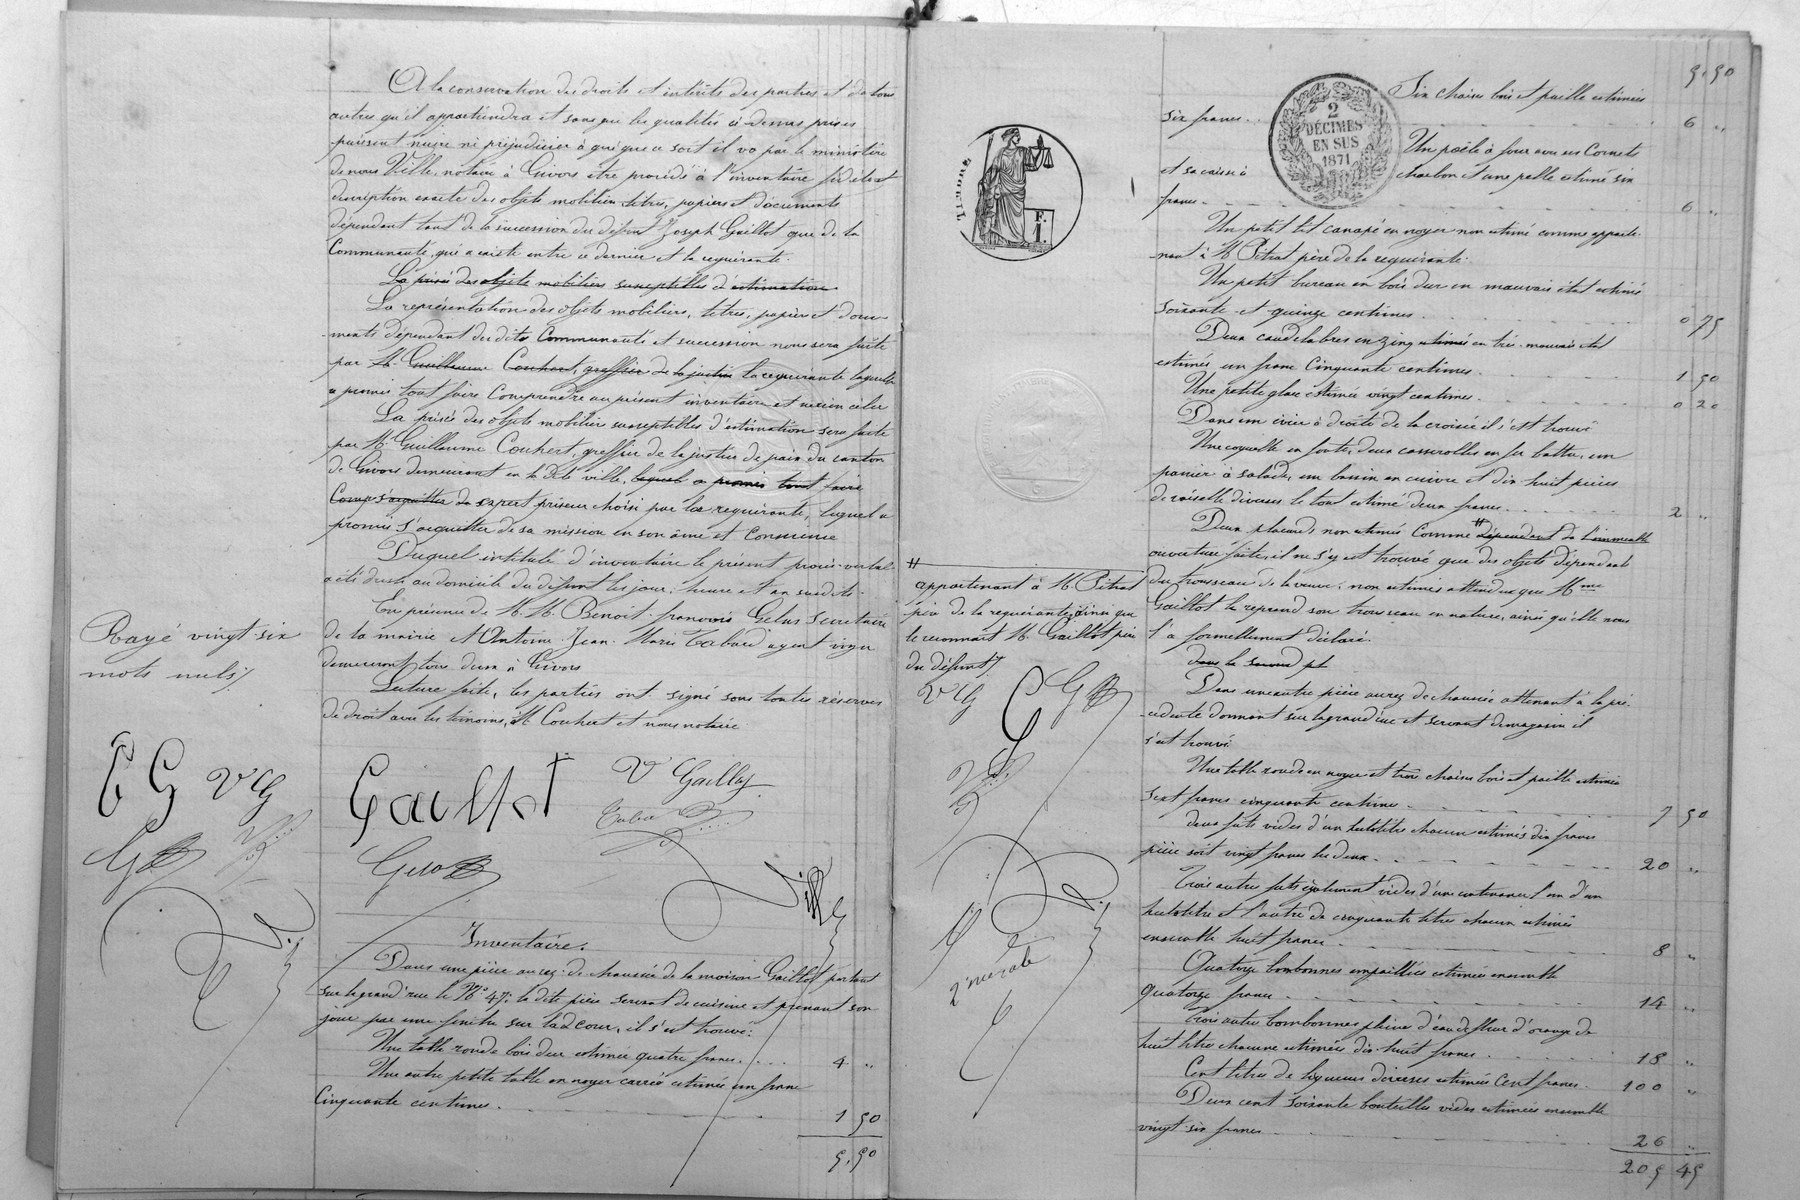 A la conservation des droits et intérêts des parties et de tous
autres qu'il appartiendra et sans que les qualités ci-dessus prises
puissent nuire ni préjudicier à qui que ce soit il va par le ministère
de nous Ville, notaire à Givors être procédé à l'inventaire fidèle et
description exacte des objets mobiliers titres, papiers et documents
dépendant tant de la succession du défunt Joseph Gaillot que de la
Communauté qui a existé entre ce dernier et la requérante.
La prisée des objets mobiliers susceptibles d'estimation
La représentation des objets mobiliers, titres, papiers et docu-
-ments dépendant des dits Communauté et succession nous sera faite
par M. Guillaume Couhert, greffier de la justice la requérante laquelle
a promis tout faire Comprendre au présent inventaire et n'en rien céler
La prisée des objets mobilier susceptibles d'estimation sera faite
par Mr Guillaume Couhert, greffier de la justice de paix du canton
de Givors demeurant en la dite ville, lequel a promis tout faire
Comp s'acquitter de expert priseur choisi par la requérante, lequel a
promis s'acquitter de sa mission en son âme et Conscience
Duquel intitulé d'inventaire le présent procès-verbal
a été dressé au domicile du défunt les jour, heure et an susdits.
En présence de M. M. Benoit-françois Gelas Secrétaire
de la mairie et Antoine Jean Marie Tabard agent voyer
demeurant tous deux à Givors
Lecture faite, les parties ont signé sous toutes réserves
de droit avec les témoins, M. Couhert et nous notaire
Rayé vingt six
mots nuls/.
G G VG
Gaillot
V Gailly
Gelas
Ville
Inventaire.
Dans une pièce au rez-de-chaussée de la maison Gaillot portant
sur la grand'rue le No 47, la dite pièce servant de cuisine et prenant son
jour par une fenêtre sur la cour, il s'est trouvé:
Une table ronde bois dur estimée quatre francs. 4 "
Une autre petite table en noyer carrée estimée un franc
Cinquante centimes. 1 50
5.50
5.50
2
DÉCIMES
EN SUS
1871
TIMBRE
F.
I.
Six chaises bois et paille estimées
six francs. 6 "
Un poêle à four avec ses Cornets
et sa caisse à charbon et une pelle estimé six
francs. 6 "
Un petit lit canapé en noyer non estimé comme apparte-
nant à M. Pitrat père de la requérante.
Un petit bureau en bois dur en mauvais état estimé
soixante et quinze centimes. 0 75
Deux candelabres en zing estimés en très mauvais état
estimés un franc Cinquante centimes. 1 50
Une petite glace estimée vingt centimes. 0 20
Dans un évier à droite de la croisée il s'est trouvé
Une coquelle en fonte, deux casserolles en fer battu, un
panier à salade, un bassin en cuivre et dix huit pièces
de vaisselle diverses le tout estimé deux francs. 2 "
Deux placards non estimés Comme # dépendant de l'immeuble
ouverture faite, il ne s'y est trouvé que des objets dépendant
du trousseau de la veuve, non estimés attendu que Mme
Gaillot le reprend son trousseau en nature, ainsi qu'elle nous
l'a formellement déclaré.
dans la second pl
#
appartenant à M. Pitrat
père de la requérante, ainsi que
le reconnait M. Gaillot père
du défunt/.
VG
Dans une autre pièce au rez de chaussée attenant à la pré-
-cédente donnant sur la grand'rue et servant de magasin il
s'est trouvé.
Une table ronde en noyer et trois chaises bois et paille estimées
sept francs cinquante centimes. 7 50
deux futs vides d'un hectolitre chacun estimés dix francs
pièce soit vingt francs les deux. 20 "
Trois autres futs également vides d'une contenance l'un d'un
hectolitre et l'autre de cinquante litres chacun estimés
ensemble huit francs. 8 "
Quatorze bonbonnes empaillées estimées ensemble
Quatorze francs. 14 "
Trois autres bombonnes pleines d'eau de fleur d'orange de
huit litres chacune estimées dix-huit francs. 18 "
Cent litres de liqueurs diverses estimés Cent francs. 100 "
Deux cent soixante bouteilles vides estimées ensemble
vingt-six francs. 26 "
209 45